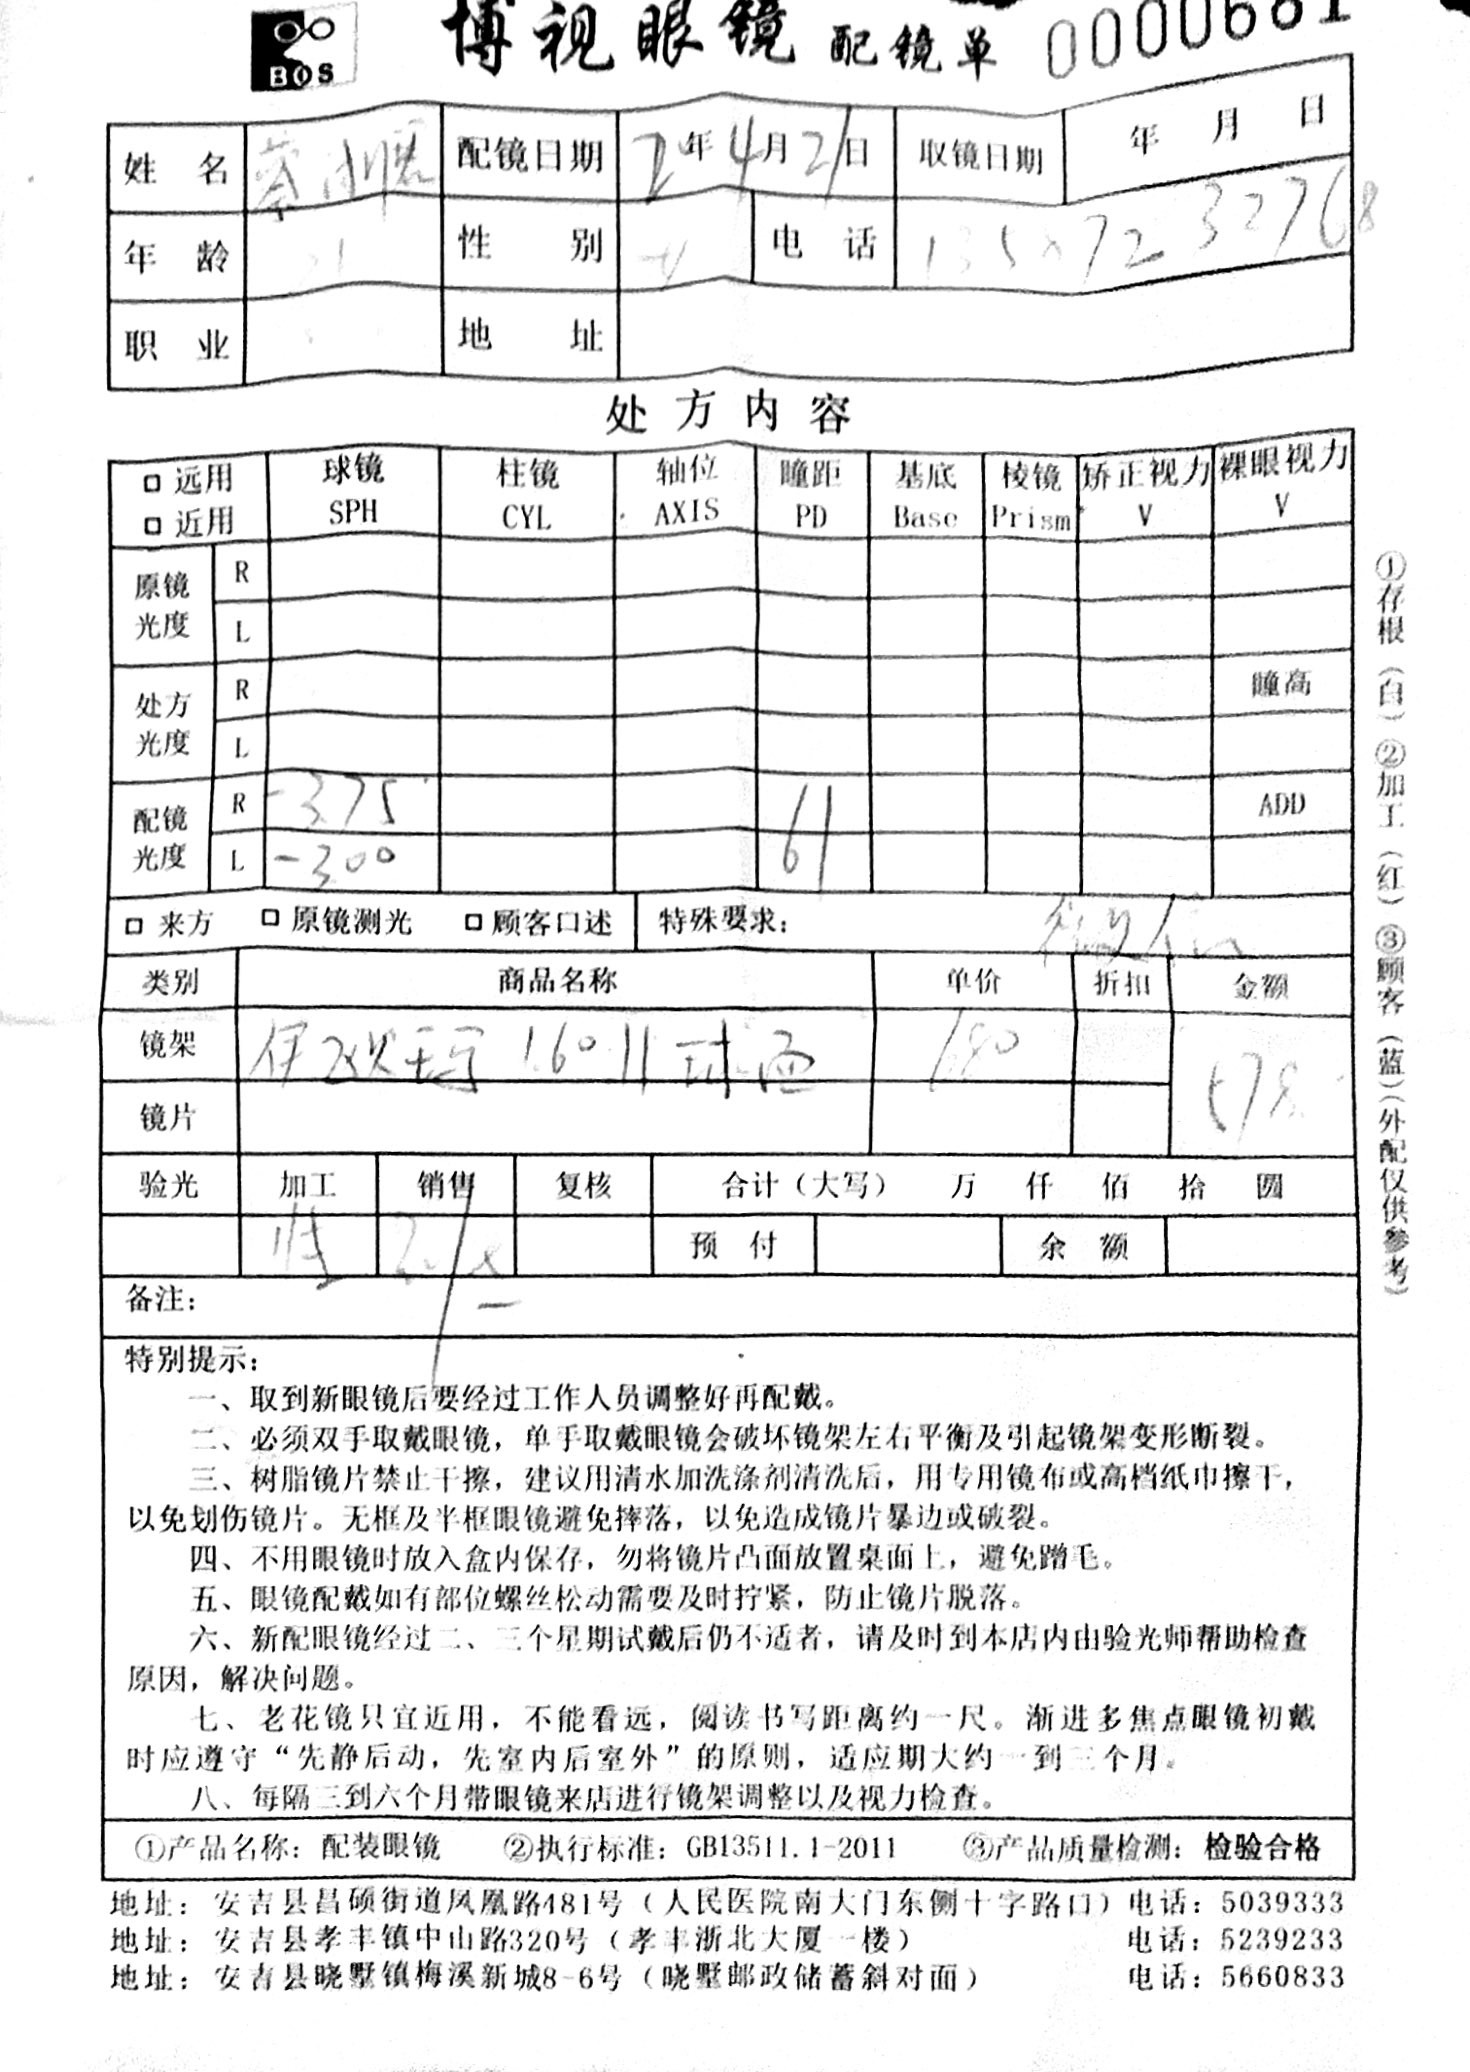 BOS
博视眼镜 配镜单 0000681
姓名 配镜日期 年4月21日 取镜日期 年 月 日
年龄 性别 电话
职业 地址
处方内容
□ 远用 球镜 柱镜 轴位 瞳距 基底 棱镜 矫正视力 裸眼视力
□ 近用 SPH CYL AXIS PD Base Prism V V
原镜光度 R
L
处方光度 R 瞳高
L
配镜光度 R -3.75 61 ADD
L -3.00
□ 来方 □ 原镜测光 □ 顾客口述 特殊要求：
类别 商品名称 单价 折扣 金额
镜架 1.60 球面
镜片
验光 加工 销售 复核 合计（大写） 万 仟 佰 拾 圆
预付 余额
备注：
特别提示：
一、取到新眼镜后要经过工作人员调整好再配戴。
二、必须双手取戴眼镜，单手取戴眼镜会破坏镜架左右平衡及引起镜架变形断裂。
三、树脂镜片禁止干擦，建议用清水加洗涤剂清洗后，用专用镜布或高档纸巾擦干，
以免划伤镜片。无框及半框眼镜避免摔落，以免造成镜片暴边或破裂。
四、不用眼镜时放入盒内保存，勿将镜片凸面放置桌面上，避免蹭毛。
五、眼镜配戴如有部位螺丝松动需要及时拧紧，防止镜片脱落。
六、新配眼镜经过二、三个星期试戴后仍不适者，请及时到本店内由验光师帮助检查
原因，解决问题。
七、老花镜只宜近用，不能看远，阅读书写距离约一尺。渐进多焦点眼镜初戴
时应遵守“先静后动，先室内后室外”的原则，适应期大约一到三个月。
八、每隔三到六个月带眼镜来店进行镜架调整以及视力检查。
①产品名称：配装眼镜 ②执行标准：GB13511.1-2011 ③产品质量检测：检验合格
地址：安吉县昌硕街道凤凰路481号（人民医院南大门东侧十字路口）电话：5039333
地址：安吉县孝丰镇中山路320号（孝丰浙北大厦一楼） 电话：5239233
地址：安吉县晓墅镇梅溪新城8-6号（晓墅邮政储蓄斜对面） 电话：5660833
①存根（白）②加工（红）③顾客（蓝）（外配仅供参考）